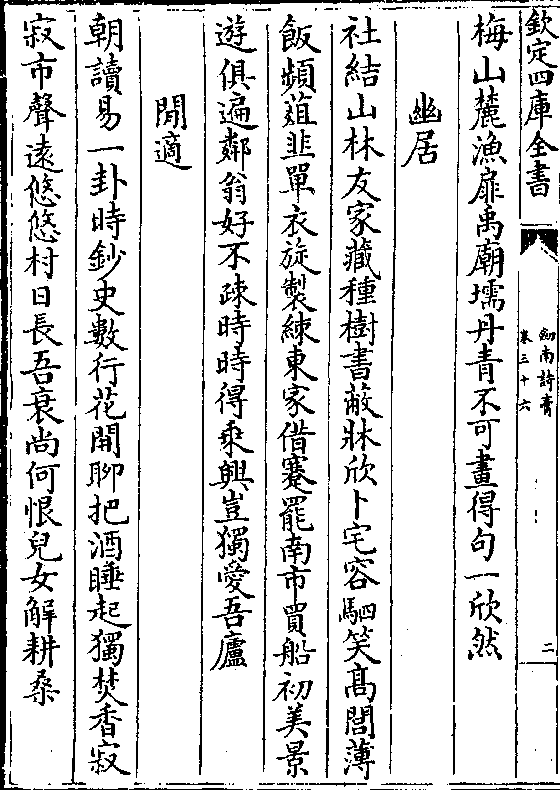 欽定四庫全書
劒南詩藁
卷三十六
二
梅山麓漁扉禹廟壖丹青不可畫得句一欣然
幽居
社結山林友家藏種樹書蔽牀欣卜宅容駟笑髙閭薄
飯頻葅韭單衣旋製練東家借蹇罷南市買船初美景
遊俱遍鄰翁好不疎時時得乗興豈獨愛吾廬
閒適
朝讀易一卦時鈔史數行花開聊把酒睡起獨焚香寂
寂市聲逺悠悠村日長吾衰尚何恨兒女解耕桑